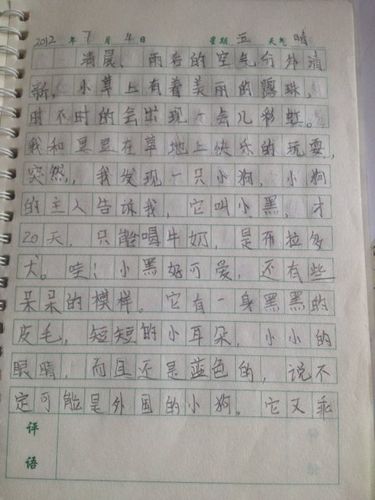 2012 年 7 月 4 日 星期 五 天气 晴
清晨，雨后的空气分外清
新，小草上有着美丽的露珠，
时不时的会出现一会儿彩虹。
我和果果在草地上快乐的玩耍，
突然，我发现一只小狗，小狗
的主人告诉我，它叫小黑，才
20天，只能喝牛奶，是布拉多
犬。哇！小黑好可爱，还有些
呆呆的模样。它有一身黑黑的
皮毛，短短的小耳朵，小小的
眼睛，而且还是蓝色的，说不
定可能是外国的小狗。它又乖
评语